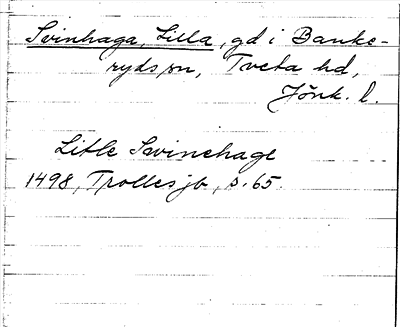 Svinhaga, Lilla, gd i Banke-
ryds sn, Tveta hd,
Jönk. l.
Litle Svinehage
1498, Trolles jb, s. 65.